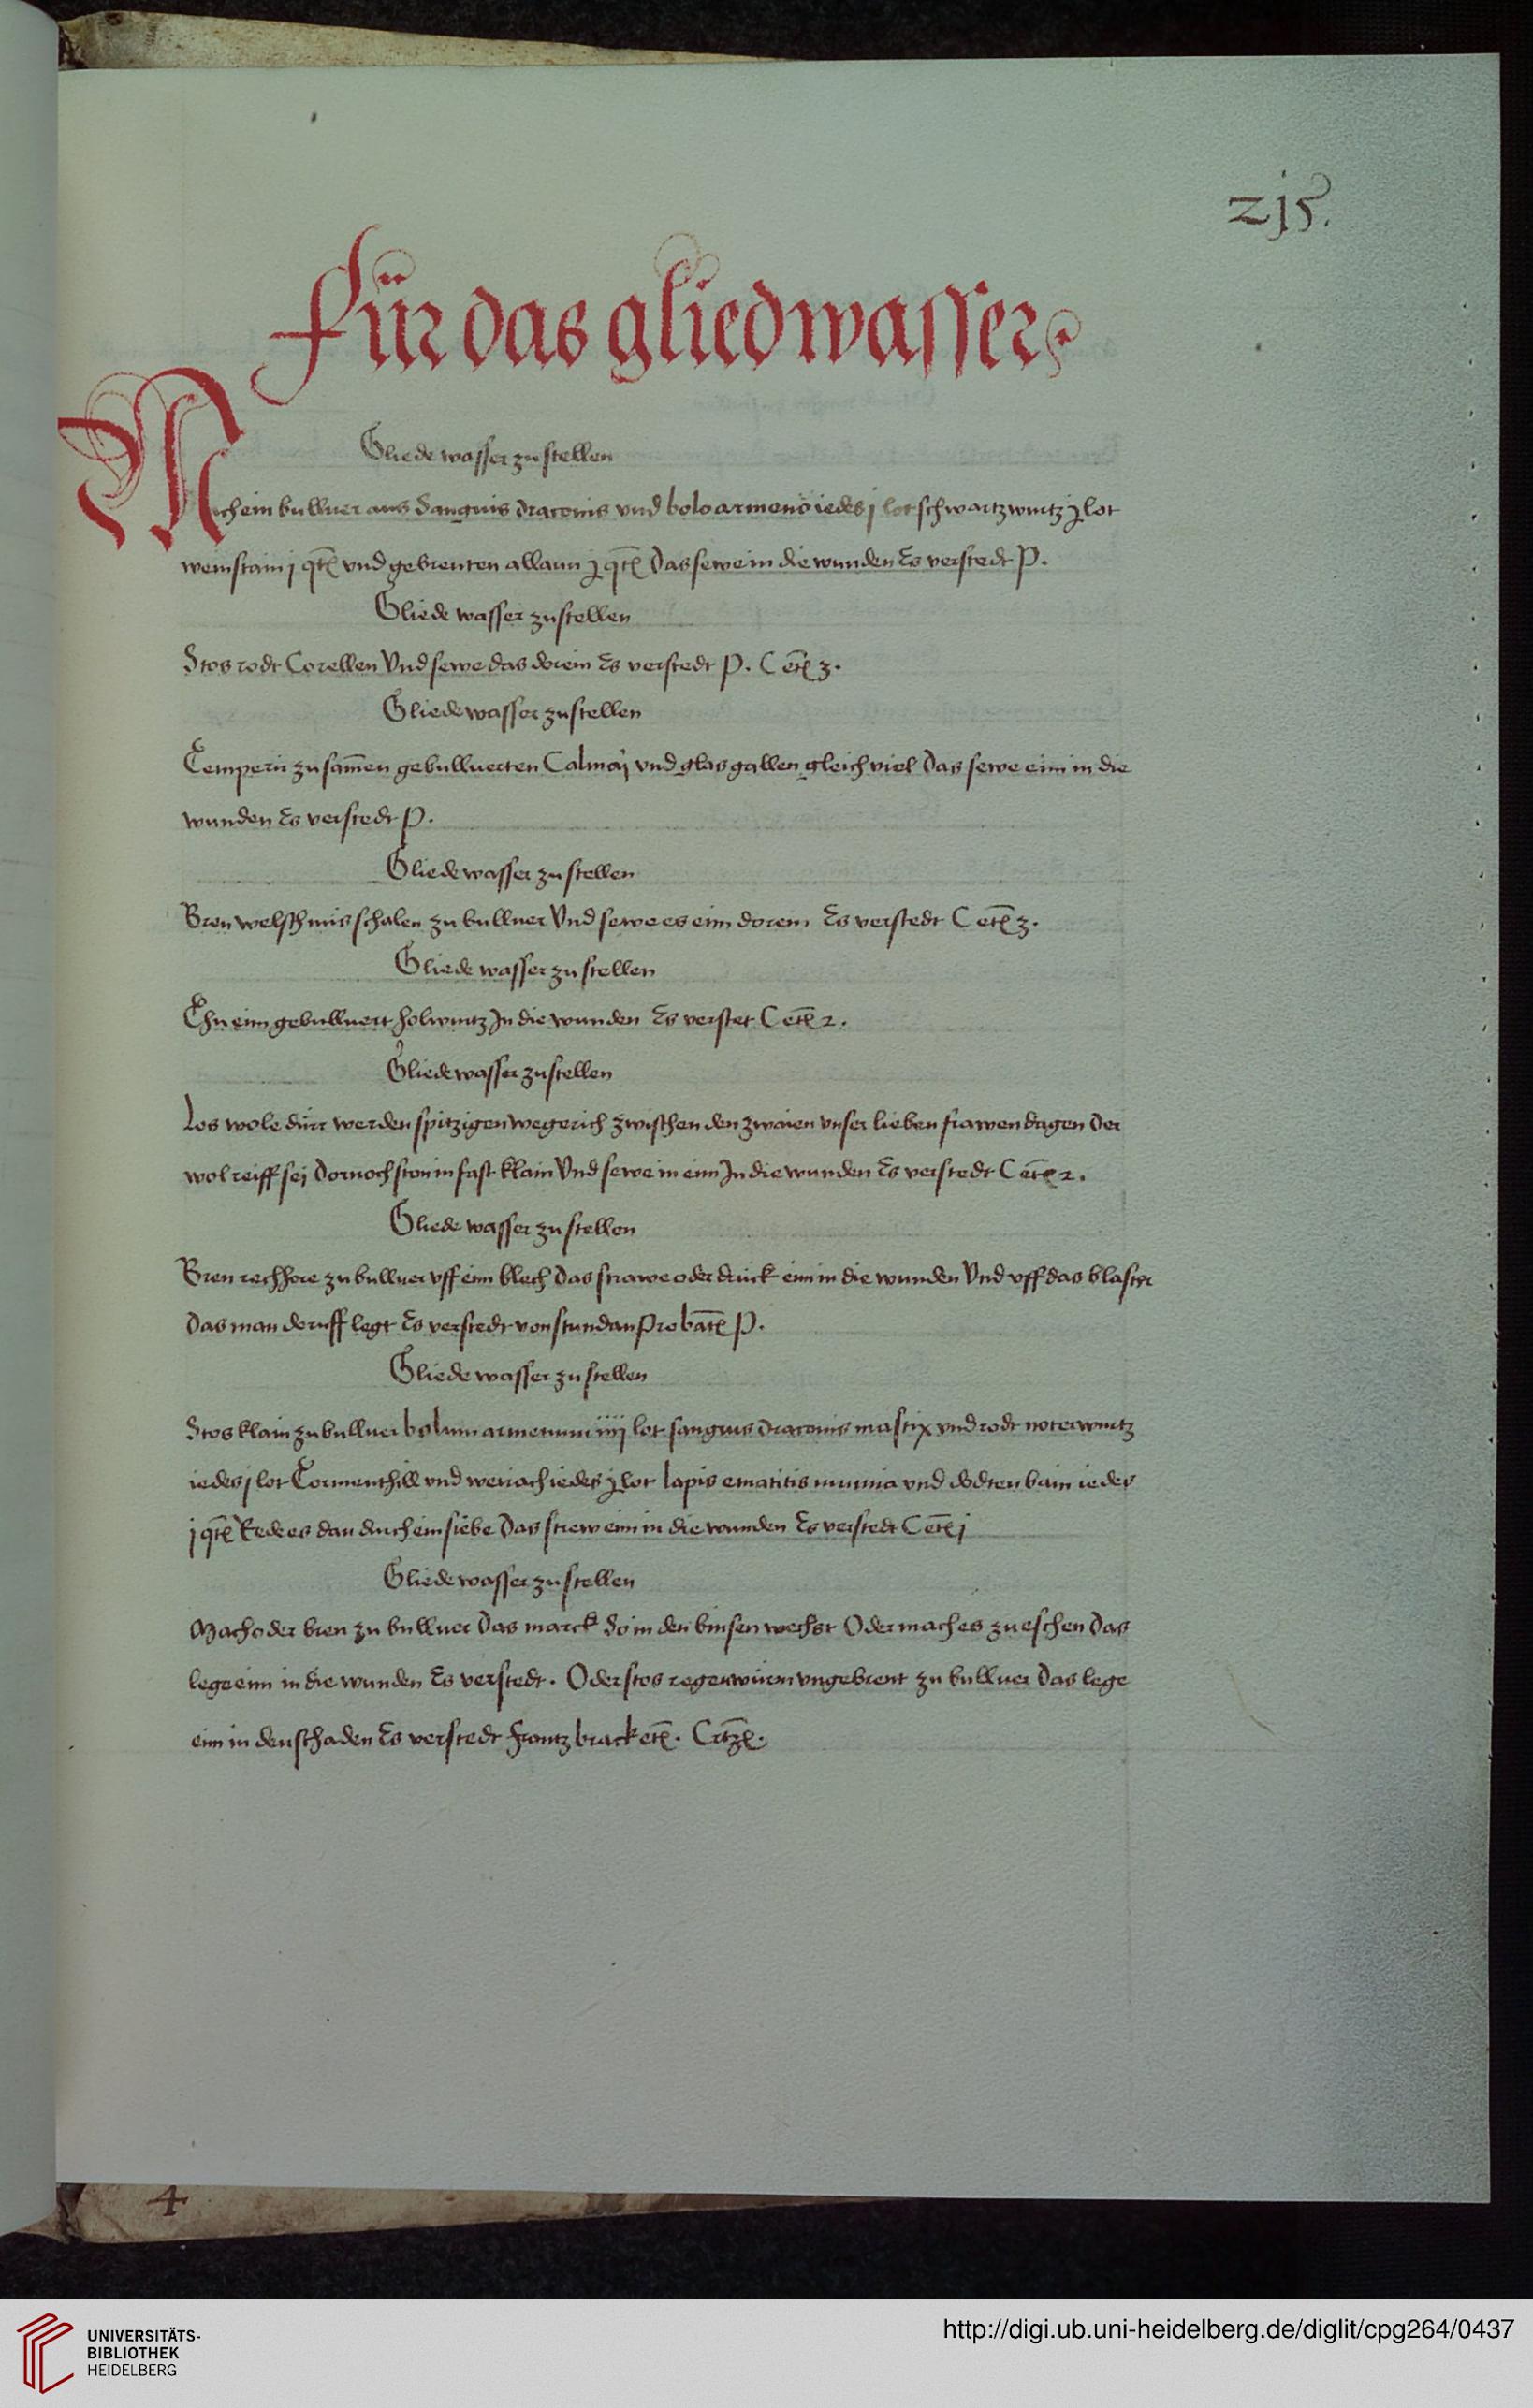 zj5.
Für das gliedwasser
Gliede wasser zu stellen
Mach ein bulluer aus Sanguis draconis vnd bolo armeno iedes j lot schwartzwurtz j lot
weinstain j qt̄ vnd gebrenten allaun j qt̄ Das sewe in die wunden Es verstedt P.
Gliede wasser zu stellen
Stos rodt Corellen Vnd sewe das dorein Es verstedt P. C et̄ 3.
Gliede wasser zu stellen
Temperir zusam̄en gebulluerten Calmaÿ vnd glasgallen gleich viel Das sewe einn in die
wunden Es verstedt P.
Gliede wasser zu stellen
Bren welsch nus schalen zu bulluer Vnd sewe es einn dorein Es verstedt C et̄ 3.
Gliede wasser zu stellen
Thu einn gebulluert holwurtz In die wunden Es verstet C et̄ 2.
Gliede wasser zu stellen
Los wole dürr werden spitzigen wegerich zwischen den zwaien vnser lieben frawen dagen Der
wol reiff sej Dornoch stos in fast klain Vnd sewe in einn In die wunden Es verstedt C et̄ 2.
Gliede wasser zu stellen
Bren rechhore zu bulluer vff einn blech Das strawe oder druck einn in die wunden Vnd vff das blaster
Das man doruff legt Es verstedt von stundan Probat̄ P.
Gliede wasser zu stellen
Stos klain zu bulluer bolum armenum iiij lot sanguis draconis mastix vnd rodt noterwurtz
iedes j lot Tormenthill vnd weriach iedes j lot lapis ematitis mumia vnd dodten bain iedes
j qt̄ Rede es dan durch ein siebe Das strew einn in die wunden Es verstedt C et̄ j
Gliede wasser zu stellen
Mach oder bren zu bulluer Das marck So in den binsen wechst Oder mach es zu eschen Das
lege einn in die wunden Es verstedt. Oder stos regenwürm vngebrent zu bulluer Das lege
einn in den schaden Es verstedt Frantz brack et̄.
4
UNIVERSITÄTS-
BIBLIOTHEK
HEIDELBERG
http://digi.ub.uni-heidelberg.de/diglit/cpg264/0437